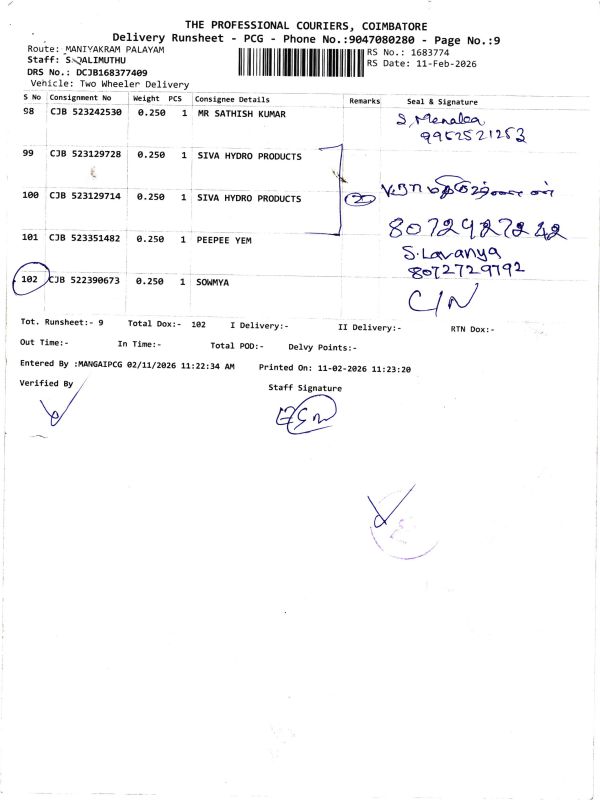 THE PROFESSIONAL COURIERS, COIMBATORE
Delivery Runsheet - PCG - Phone No.:9047080280 - Page No.:9
Route: MANIYAKRAM PALAYAM
RS No.: 1683774
Staff: S.QALIMUTHU
RS Date: 11-Feb-2026
DRS No.: DCJB168377409
Vehicle: Two Wheeler Delivery
S No Consignment No Weight PCS Consignee Details Remarks Seal & Signature
98 CJB 523242530 0.250 1 MR SATHISH KUMAR S. Menaka
9952521253
99 CJB 523129728 0.250 1 SIVA HYDRO PRODUCTS
100 CJB 523129714 0.250 1 SIVA HYDRO PRODUCTS 2
8072427242
101 CJB 523351482 0.250 1 PEEPEE YEM S. Lavanya
8072729792
102 CJB 522390673 0.250 1 SOWMYA C/N
Tot. Runsheet:- 9 Total Dox:- 102 I Delivery:- II Delivery:- RTN Dox:-
Out Time:- In Time:- Total POD:- Delvy Points:-
Entered By :MANGAIPCG 02/11/2026 11:22:34 AM Printed On: 11-02-2026 11:23:20
Verified By Staff Signature